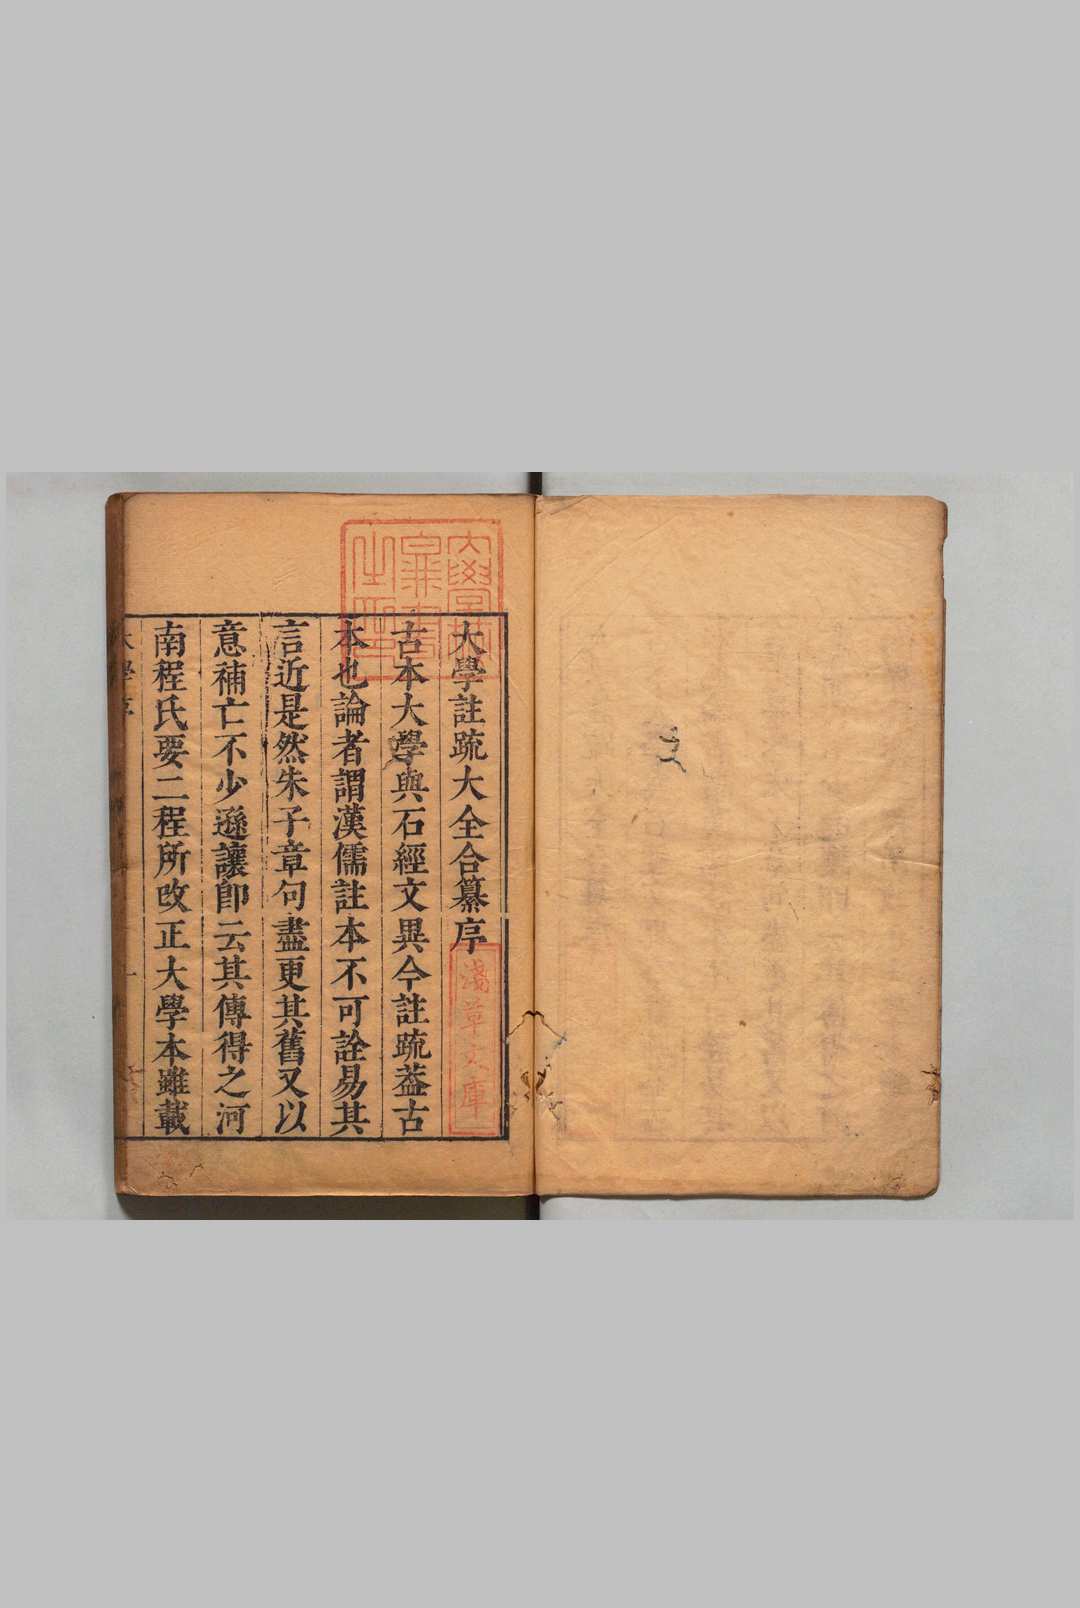 大學註疏大全合纂序
古本大學與石經文異今註疏葢古
本也論者謂漢儒註本不可詮易其
言近是然朱子章句盡更其舊又以
意補亡不少遜讓卽云其傳得之河
南程氏要二程所改正大學本雖載
大學序
淺草文庫